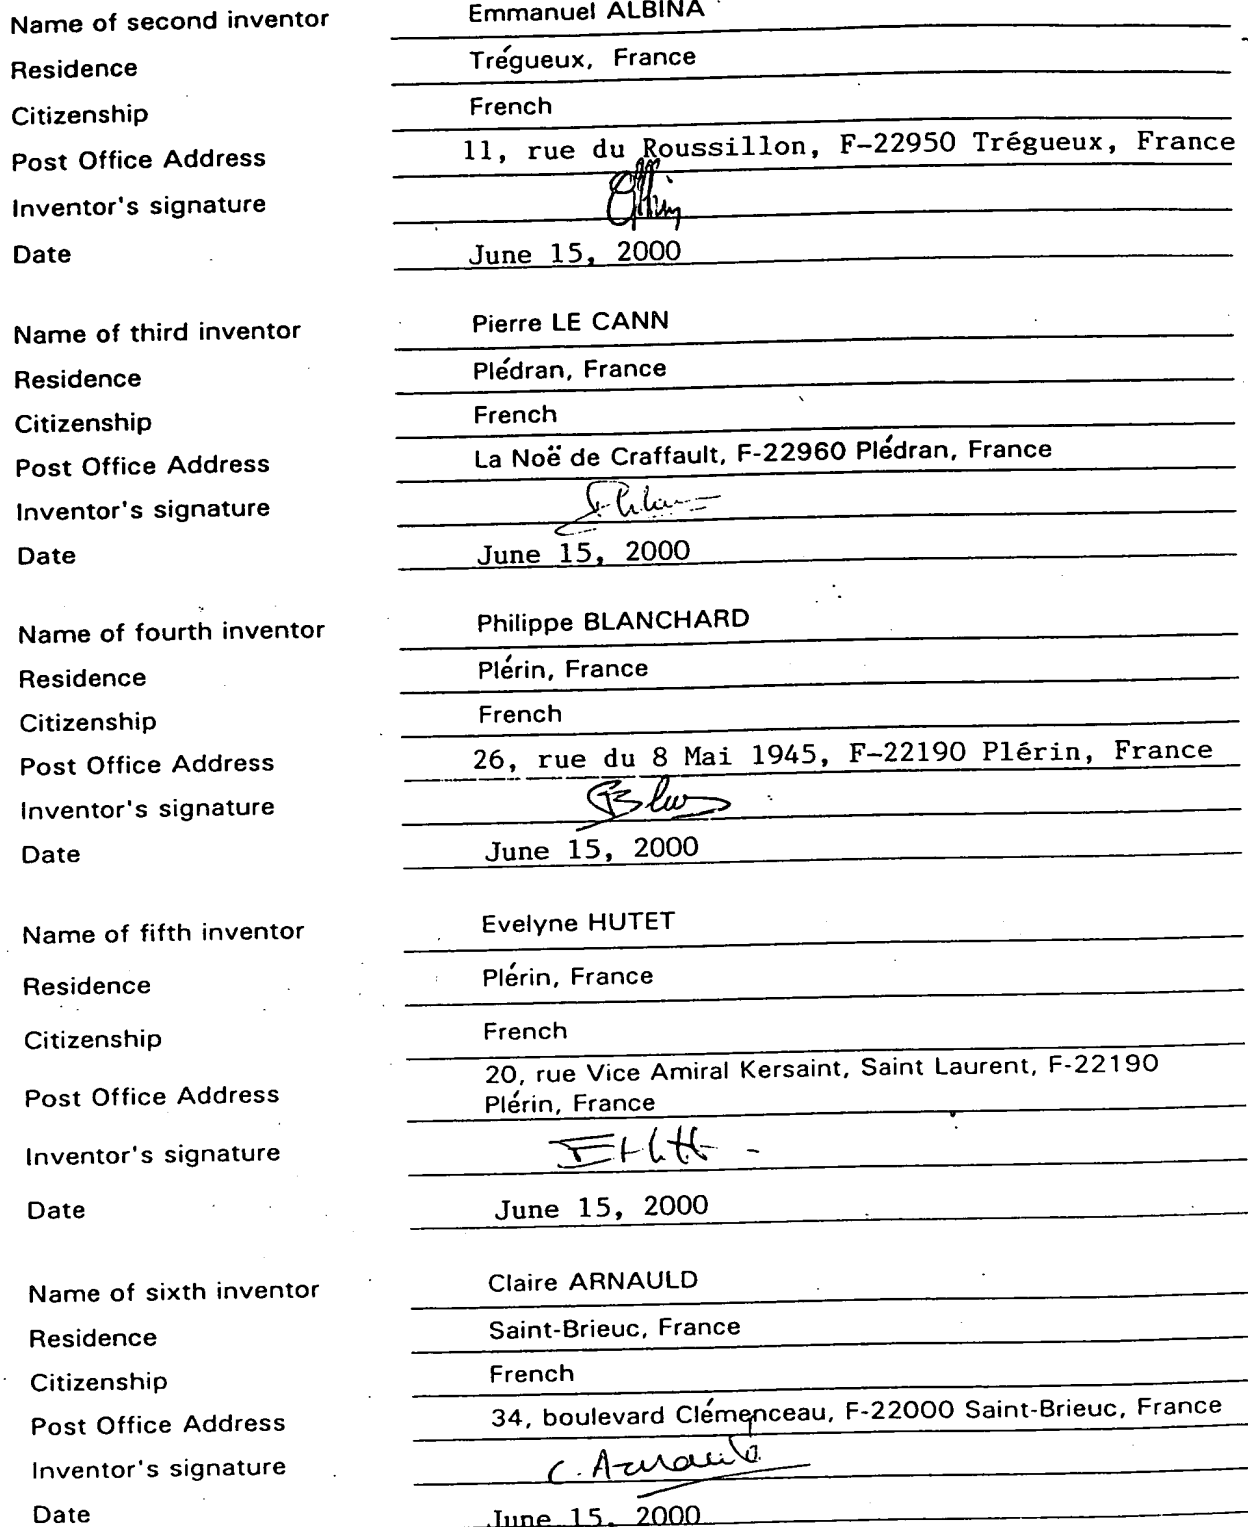 Name of second inventor Emmanuel ALBINA
Residence Trégueux, France
Citizenship French
Post Office Address 11, rue du Roussillon, F-22950 Trégueux, France
Inventor's signature
Date June 15, 2000
Name of third inventor Pierre LE CANN
Residence Plédran, France
Citizenship French
Post Office Address La Noë de Craffault, F-22960 Plédran, France
Inventor's signature
Date June 15, 2000
Name of fourth inventor Philippe BLANCHARD
Residence Plérin, France
Citizenship French
Post Office Address 26, rue du 8 Mai 1945, F-22190 Plérin, France
Inventor's signature
Date June 15, 2000
Name of fifth inventor Evelyne HUTET
Residence Plérin, France
Citizenship French
Post Office Address 20, rue Vice Amiral Kersaint, Saint Laurent, F-22190
Plérin, France
Inventor's signature
Date June 15, 2000
Name of sixth inventor Claire ARNAULD
Residence Saint-Brieuc, France
Citizenship French
Post Office Address 34, boulevard Clémenceau, F-22000 Saint-Brieuc, France
Inventor's signature C. Arnauld
Date June 15, 2000